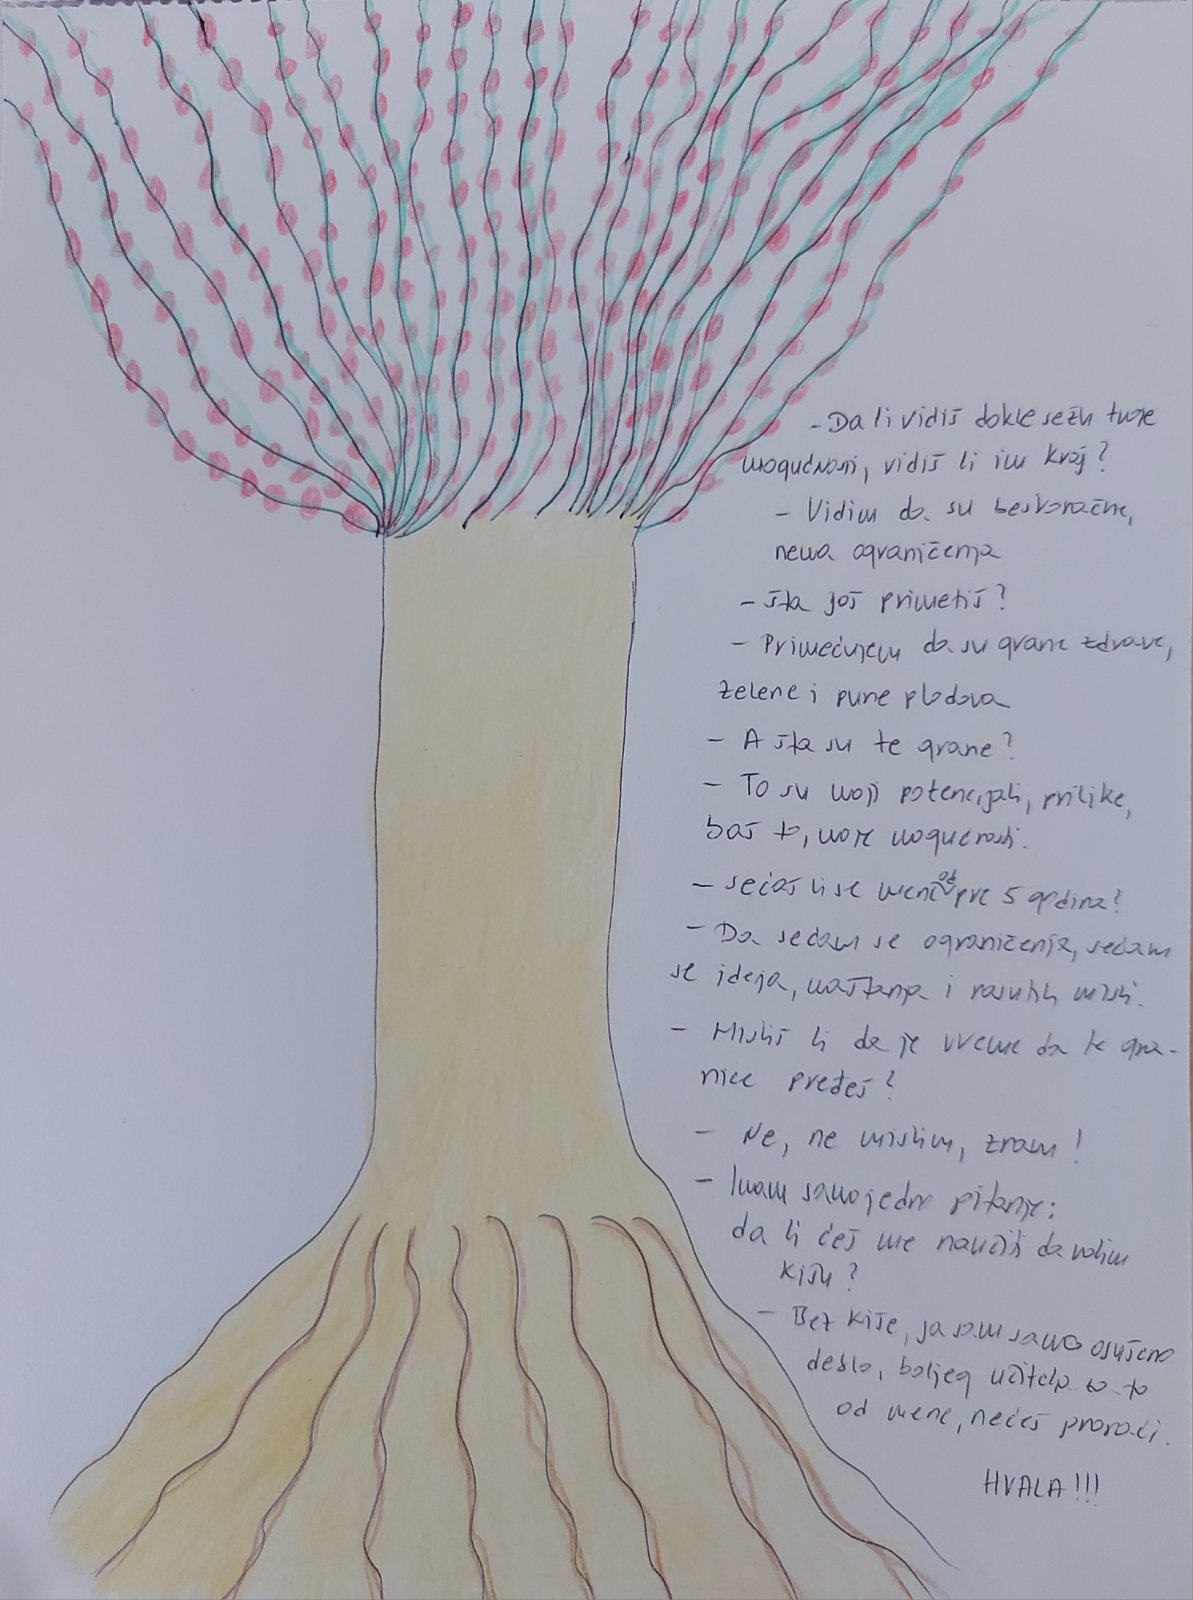 - Da li vidiš dokle sežu tvoje
mogućnosti, vidiš li im kraj?
- Vidim da su beskonačne,
nema ograničenja
- Šta još primetiš?
- Primećujem da su grane zdrave,
zelene i pune plodova
- A šta su te grane?
- To su moji potencijali, prilike,
baš to, moje mogućnosti.
- Sećaš li se mene od pre 5 godina?
- Da sećam se ograničenja, sećam
se ideja, maštanja i rasutih misli.
- Misliš li da je vreme da te gra-
nice pređeš?
- Ne, ne mislim, znam!
- Imam samo jedno pitanje:
da li ćeš me naučiti da volim
kišu?
- Bez kiše, ja sam samo osušeno
deblo, boljeg učitelja za to
od mene, nećeš pronaći.
HVALA!!!